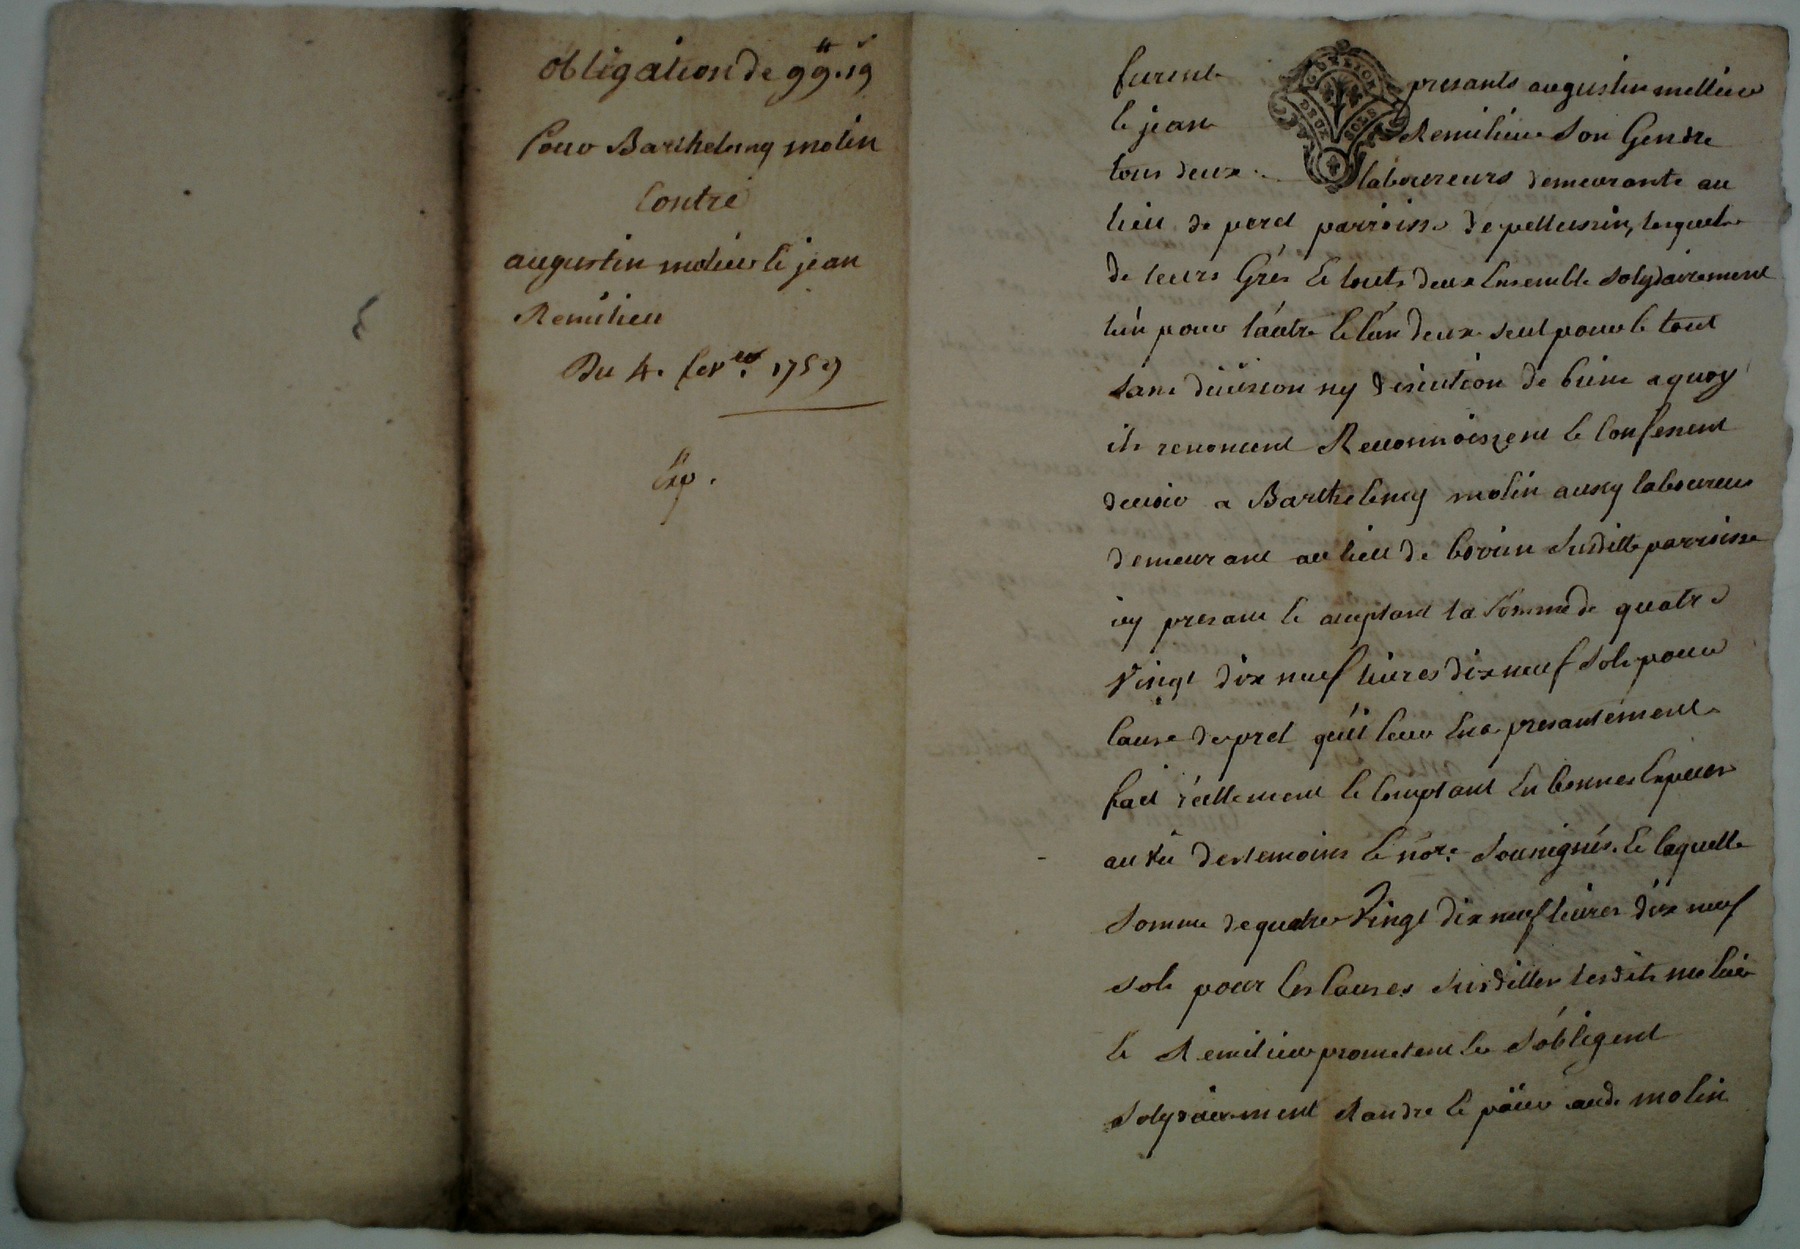 obligation de 99# 19s
Pour Barthelemy molin
Contre
augustin molieu le jean
Remilieu
Du 4. fevrer. 1759
Exp.
GENERALITE DE LYON
DEUX SOLS
furent presants augustin mellieu
le jean Remilieu Son Gendre
tous deux laboureurs demeurants au
lieu de poext parroisse de pellussin, lesquels
de leurs Grés le touts deux Ensemble Solydairement
lun pour láutre le lun deux seul pour le tout
sans division ny discution de biens aquoy
ils renoncent Reconnoissent le Confessent
devoir a Barthelemy molin aussy laboureur
demeurant au lieu de Susditte parroisse
icy presant le acceptant la Somme de quatre
Vingt dix neuf livres dix neuf Sols pour
Cause de pret quil leur En a presantement
fait réellement le Comptant En bonnes Especes
au vu des temoins le nore. Sousignés. le laquelle
Somme de quatre Vingt dix neuf livres dix neuf
sols pour les Causes Susdittes lesdits molieu
le Remilieu prometent le S'obligent
Solydairement Randre le païer aud. molin